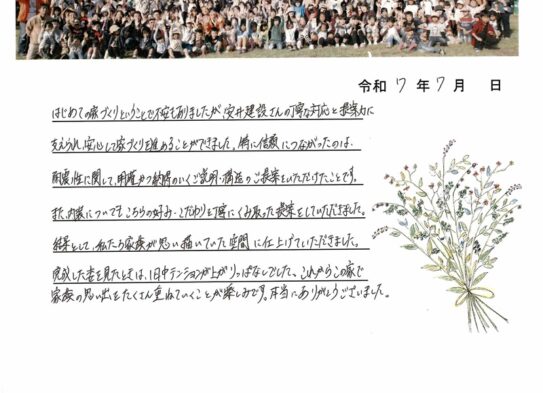 令和 7 年 7 月 日
はじめての家づくりということで不安もありましたが、安井建設さんの丁寧な対応と提案力に
支えられ、安心して家づくりを進めることができました。特に信頼につながったのは、
耐震性に関して、明確かつ納得のいくご説明・構造のご提案をいただけたことです。
また、内装についてもこちらの好み・こだわりを丁寧にくみ取った提案をしていただきました。
結果として、私たち家族が思い描いていた空間に仕上げていただきました。
完成した姿を見たときは、1日中テンションが上がりっぱなしでした。これからこの家で
家族の思い出をたくさん重ねていくことが楽しみです。本当にありがとうございました。